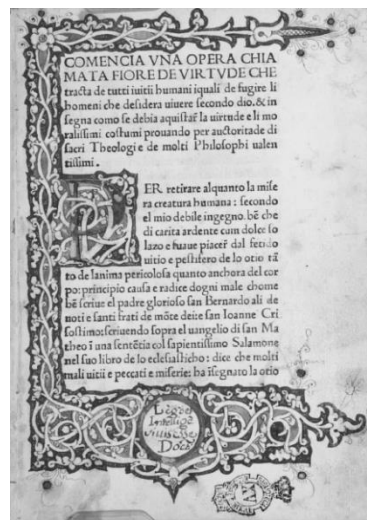 COMENCIA VNA OPERA CHIA
MATA FIORE DE VIRTVDE CHE
tracta de tutti iuitii humani iquali de fugire li
homeni che desidera uiuere secondo dio. & in
segna como se debia aquistar la uirtude e li mo
ralissimi costumi prouando per auctoritade di
sacri Theologi e de molti Philosophi ualen
tissimi.
PER retirare alquanto la mise
ra creatura humana: secondo
el mio debile ingegno. bē che
di carita ardente cum dolce so
lazo e suaue piacer dal fetido
uitio e pestifero de lo otio tā
to de lanima pericolosa quanto anchora del cor
po: principio causa e radice dogni male chome
bē scriue el padre glorioso san Bernardo ali de
uoti e santi frati de mōte dei: e san Ioanne Cri
sostimo: scriuendo sopra el uangelio di san Ma
theo ī una sentētia col sapientissimo Salamone
nel suo libro de lo eclesiasticho: dice che molti
mali uitii e peccati e miserie: ha īsegnato la otio
Legēt
Intellige